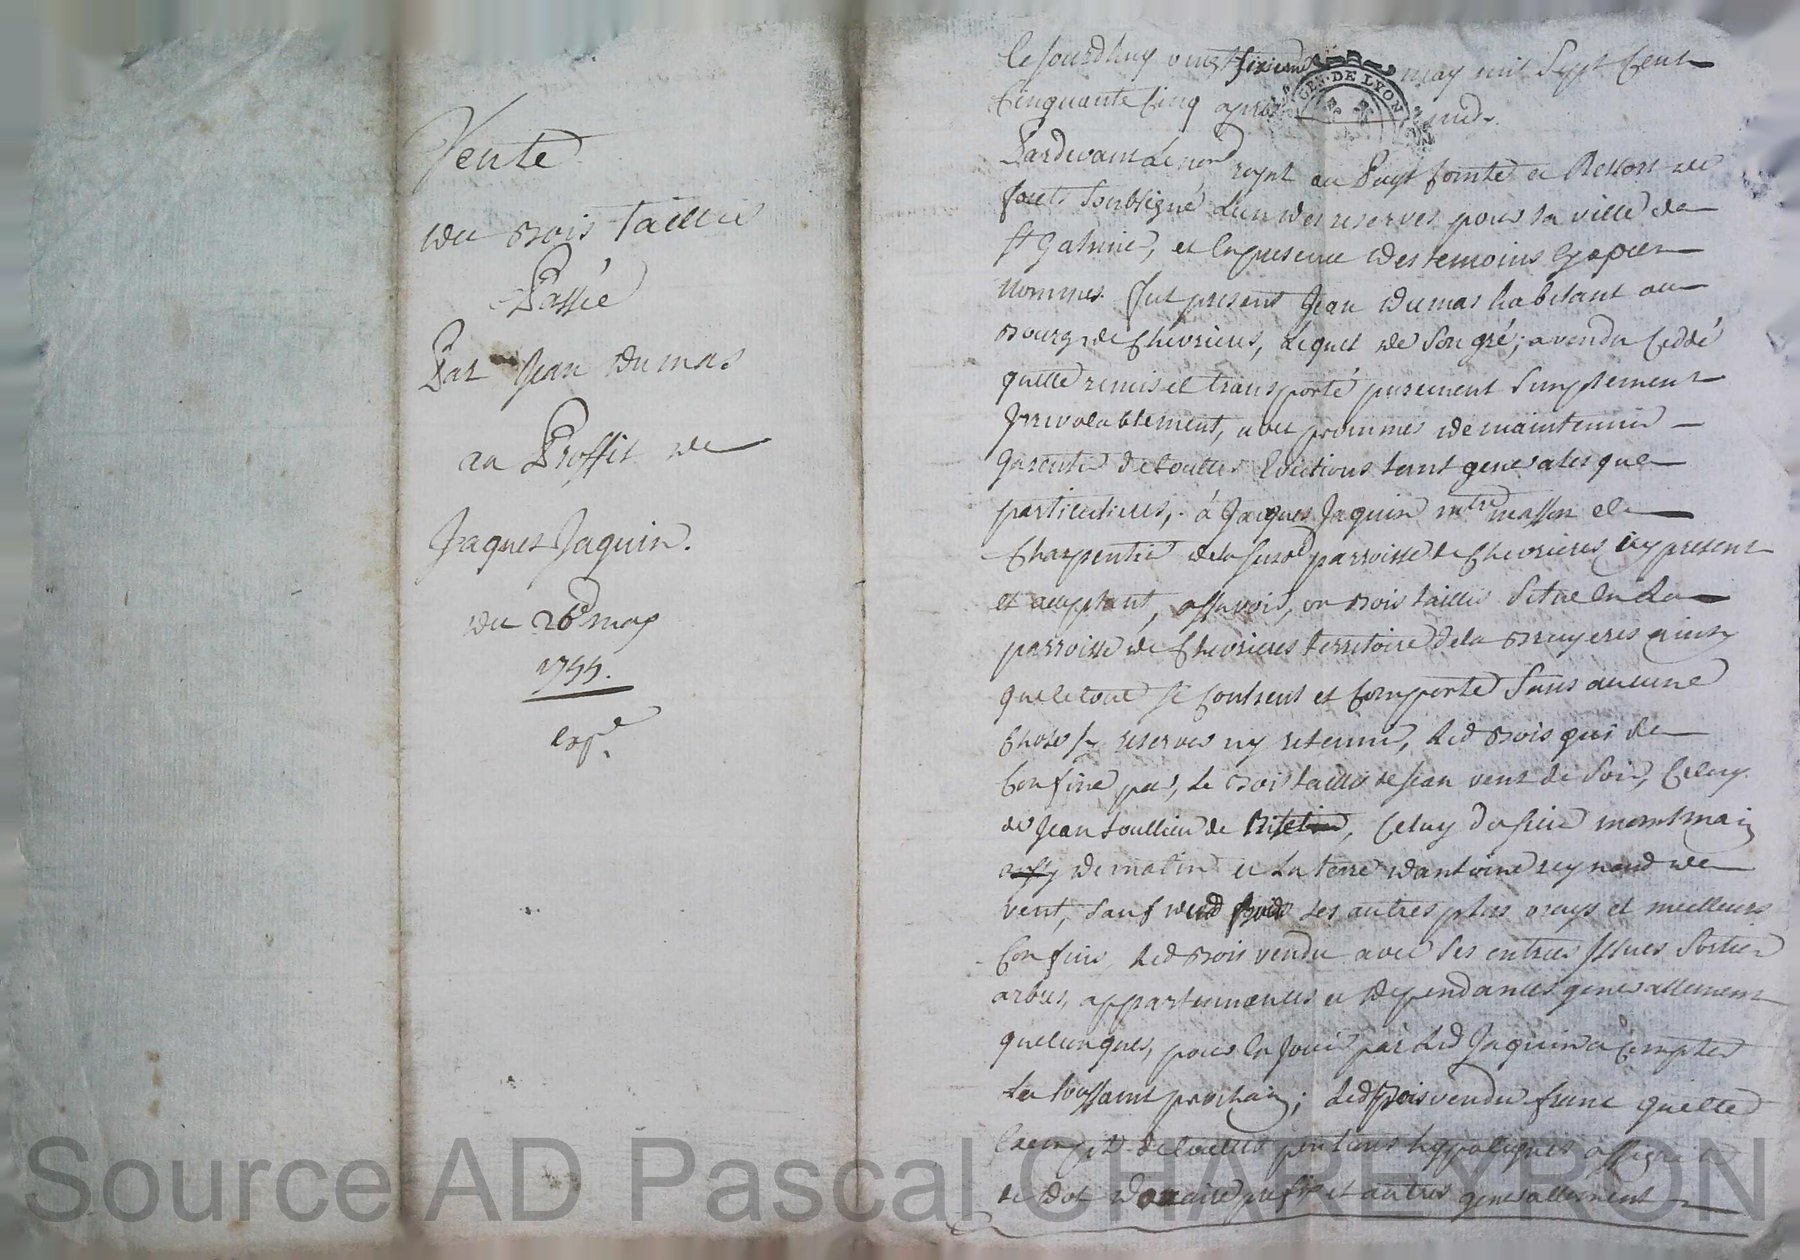 Vente
du Bois Taillis
Passée
Par Jean Dumas
au Proffit de
Jaques Jaquin.
du 26e may
1755.
exp.e
Cejourdhuy vingt sixieme may mil sept cent
Cinquante Cinq apres midy
GEN. DE LYON
Pardevant le nore royal au Pays Comté et Ressort de
forets soubsigné l'un des reserves pour la ville de
st Galmie, et en presence des temoins cy apres
nommes fut present Jean Dumas habitant au
Bourg de Chevrieres, lequel de son gré; a vendu ceddé
quitté remis et transporté purement simplement
Irrevocablement, avec prommes de maintenir
garentir de touttes evictions tant generales que
particulieres, à Jacques Jaquin mtre masson et
Charpentier de la susd parroisse de Chevrieres icy present
et acceptant, assavoir, un Bois taillis situé en la
parroisse de Chevrieres territoire de la Bruyeres ainsy
que le tout se Contient et Comporte sans aucune
Chose sy reserver ny retenir, led Bois qui se
Confine par, le Bois taillis de Jean vent de soir, Celuy
de Jean Soullier de Bise, Celuy du sieur montmain
de matin et la terre d'antoine reynaud de
vent, sauf dud Bois ses autres plus vrays et meilleurs
Confins, led Bois vendu avec ses entrees Issues sorties
arbres, appartenances et dependances generallement
quelcunques, pour en Jouir par led Jaquin a Compter
la toussaint prochain; led Bois vendu franc quitte
Exempt de touttes pentions hyppoteques assigné
de Dot Douaire prefix et autres generallement
Source AD Pascal CHAREYRON